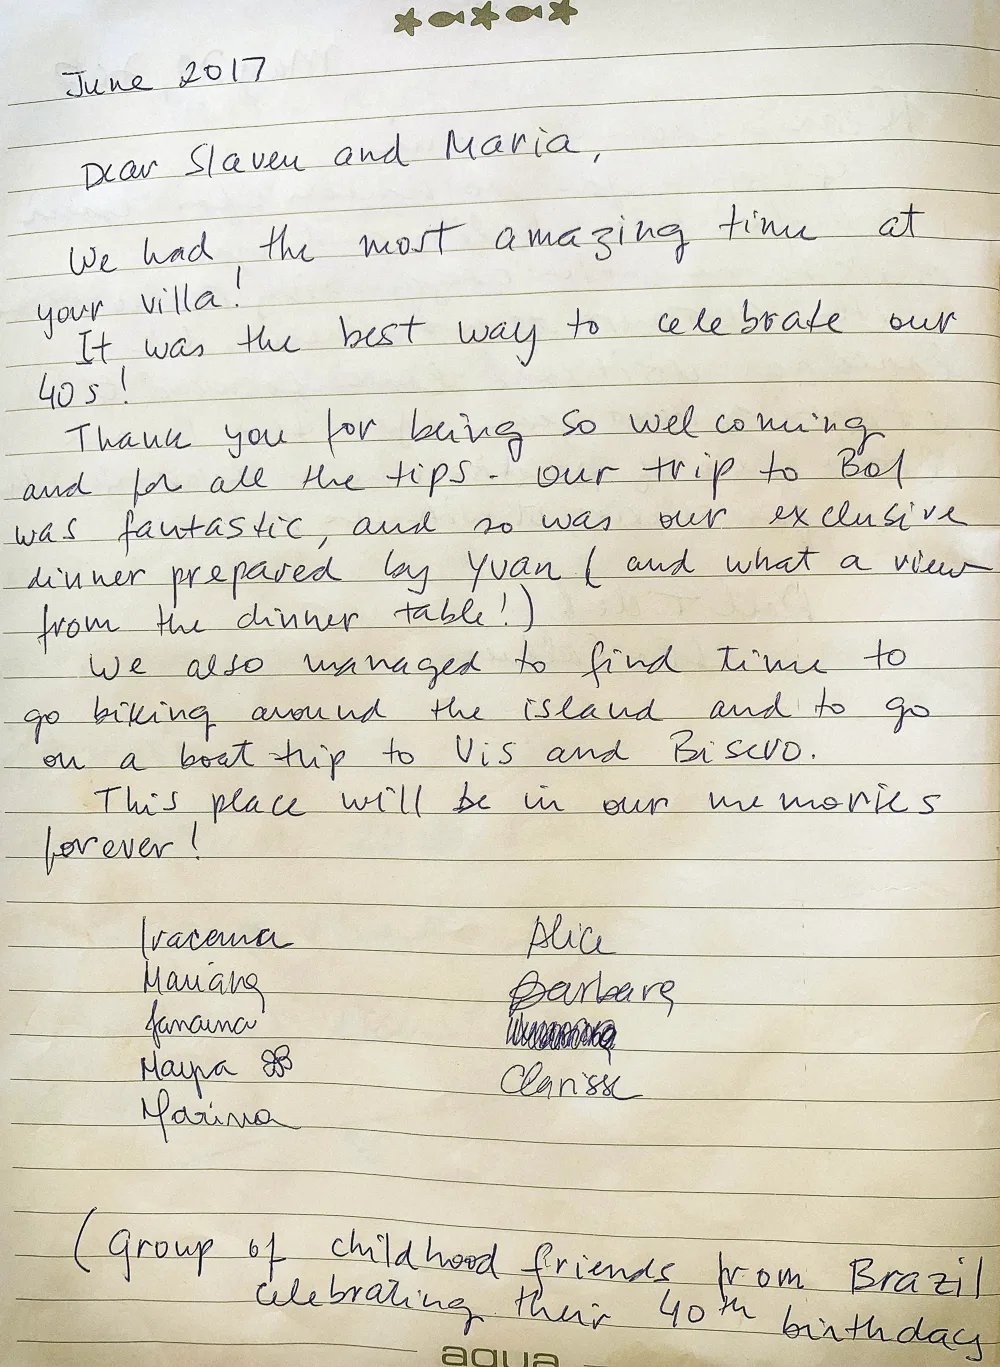 June 2017
Dear Slaven and Maria,
We had the most amazing time at
your villa!
It was the best way to celebrate our
40s!
Thank you for being so welcoming
and for all the tips - our trip to Bol
was fantastic, and so was our exclusive
dinner prepared by Yvan (and what a view
from the dinner table!)
We also managed to find time to
go biking around the island and to go
on a boat trip to Vis and Bisevo.
This place will be in our memories
forever!
Iracema Alice
Mariana Barbara
Janaina
Mayra Clarisse
Marina
(Group of childhood friends from Brazil
celebrating their 40th birthday
aqua